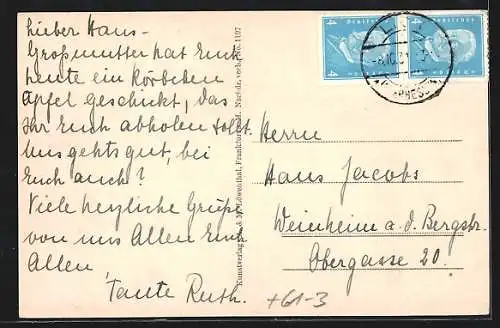 Lieber Hans -
Großmutter hat Euch
heute ein Körbchen
Äpfel geschickt, das
Ihr Euch abholen sollt.
Uns gehts gut, bei
Euch auch?
Viele herzliche Grüße
von uns Allen Euch
Allen
Tante Ruth.
Kunstverlag Löwenthal, Frankfurt Nachdr. verb. No. 1107
4 4
Herrn
Hans Jacobs
Weinheim a. d. Bergstr.
Obergasse 20.
+61-3